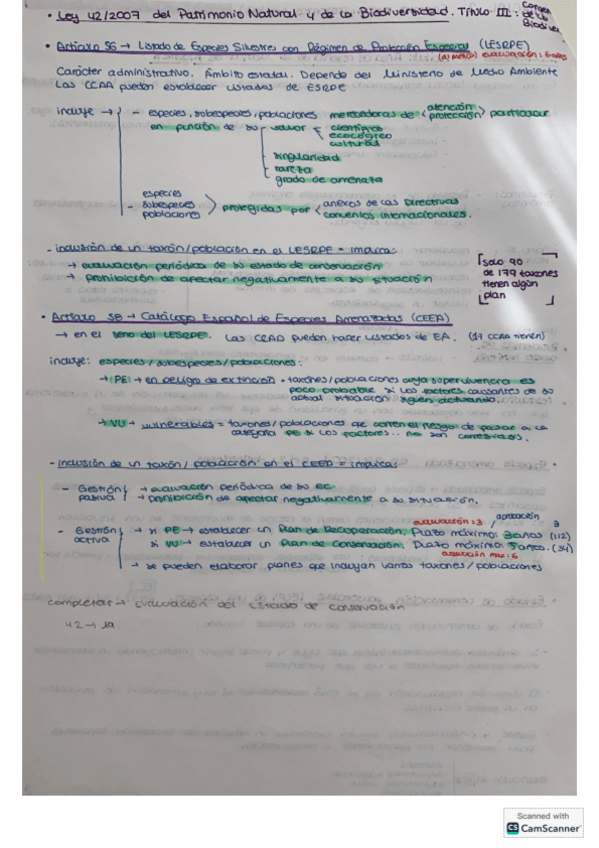 • Ley 42/2007 del Patrimonio Natural y de la Biodiversidad. Título III: Conser de la Biodiver
• Artículo 56 → Listado de Especies Silvestres con Régimen de Protección Especial (LESRPE)
evaluación: 6 años
Carácter administrativo. Ámbito estatal. Depende del Ministerio de Medio Ambiente
Las CCAA pueden establecer listados de ESRPE
incluye → - especies, subespecies, poblaciones merecedoras de atención protección particular
en función de su valor científico
ecológico
cultural
singularidad
rareza
grado de amenaza
- especies
subespecies
poblaciones
protegidas por anexos de las Directivas
convenios internacionales.
- inclusión de un taxón/población en el LESRPE = implica:
→ evaluación periódica de su estado de conservación
→ prohibición de afectar negativamente a su situación
[solo 90
de 179 taxones
tienen algún
plan]
• Artículo 58 → Catálogo Español de Especies Amenazadas (CEEA)
→ en el seno del LESRPE. Las CCAA pueden hacer listados de EA. (17 CCAA tienen)
incluye: especies/subespecies/poblaciones:
→ PE → en peligro de extinción = taxones/poblaciones cuya supervivencia es
poco probable si los factores causantes de su
actual situación siguen actuando.
→ VU → vulnerables = taxones/poblaciones que corren el riesgo de pasar a la
categoría PE si los factores... no son corregidos.
- inclusión de un taxón/población en el CEEA = implica:
- Gestión pasiva → evaluación periódica de su EC
→ prohibición de afectar negativamente a su situación.
evaluación: 3 / aprobación 3
- Gestión activa → si PE → establecer un Plan de Recuperación. Plazo máximo: 3 años (112)
si VU → establecer un Plan de Conservación. Plazo máximo: 5 años. (34)
evaluación max: 6
→ se pueden elaborar planes que incluyan varios taxones/poblaciones
completar → Evaluación del estado de conservación
42 → 19
Scanned with
CS CamScanner